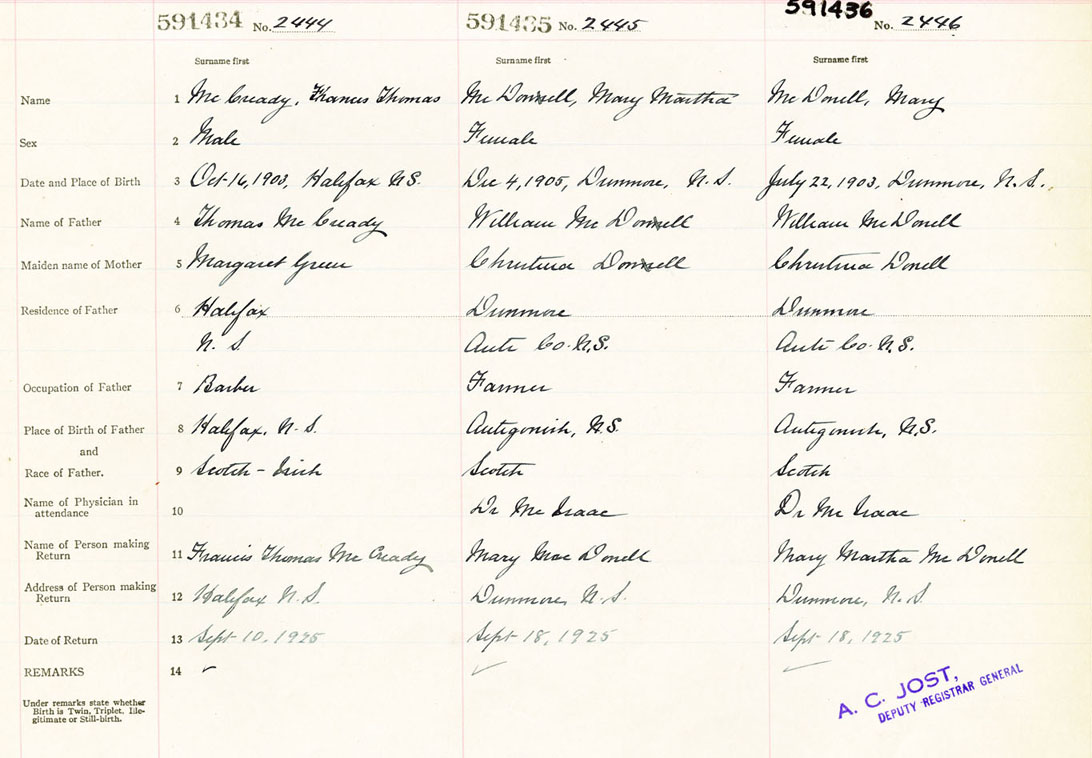 591434 No. 2444 591435 No. 2445 591436 No. 2446
Surname first Surname first Surname first
Name 1 Mc Cready, Francis Thomas Mc Donnell, Mary Martha Mc Donell, Mary
Sex 2 Male Female Female
Date and Place of Birth 3 Oct 16, 1903, Halifax N.S. Dec 4, 1905, Dunmore, N.S. July 22, 1903, Dunmore, N.S.
Name of Father 4 Thomas Mc Cready William Mc Donnell William Mc Donell
Maiden name of Mother 5 Margaret Green Christina Donnell Christina Donell
Residence of Father 6 Halifax Dunmore Dunmore
N. S. Anti Co. N.S. Anti Co. N.S.
Occupation of Father 7 Barber Farmer Farmer
Place of Birth of Father 8 Halifax, N. S. Antigonish, N.S. Antigonish, N.S.
and
Race of Father. 9 Scotch - Irish Scotch Scotch
Name of Physician in
attendance 10 Dr Mc Isaac Dr Mc Isaac
Name of Person making
Return 11 Francis Thomas Mc Cready Mary Mac Donell Mary Martha Mc Donell
Address of Person making
Return 12 Halifax N.S. Dunmore, N.S. Dunmore, N.S.
Date of Return 13 Sept 10, 1925 Sept 18, 1925 Sept 18, 1925
REMARKS 14
Under remarks state whether
Birth is Twin, Triplet, Ille-
gitimate or Still-birth.
A. C. JOST,
DEPUTY REGISTRAR GENERAL